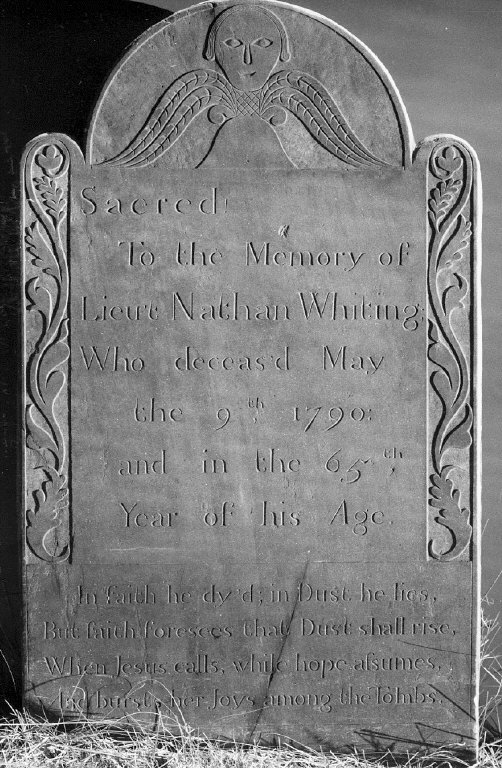 Sacred!
To the Memory of
Lieut Nathan Whiting;
Who deceas'd May
the 9th, 1790:
and in the 65th,
Year of his Age.
In faith he dy'd; in Dust he lies,
But faith foresees that Dust shall rise,
When Jesus calls, while hope aſsumes,
And bursts her Joys among the Tombs.